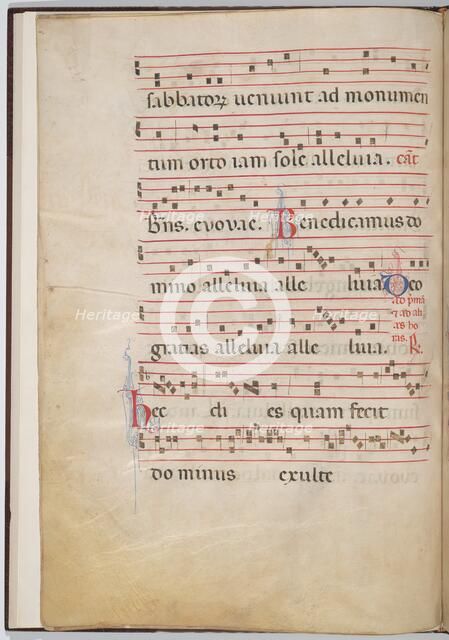 sabbatoꝝ veniunt ad monumen
tum orto iam sole alleluia. cāt
Bn̄s. evovae. Benedicamus do
mino alleluia alle luia. Deo
ad p̄mā
⁊ ad ali
as ho
ras. ℟.
gratias alleluia alle luia.
Hec di es quam fecit
do minus exulte
Heritage
Heritage
Heritage
Heritage
Heritage
Heritage